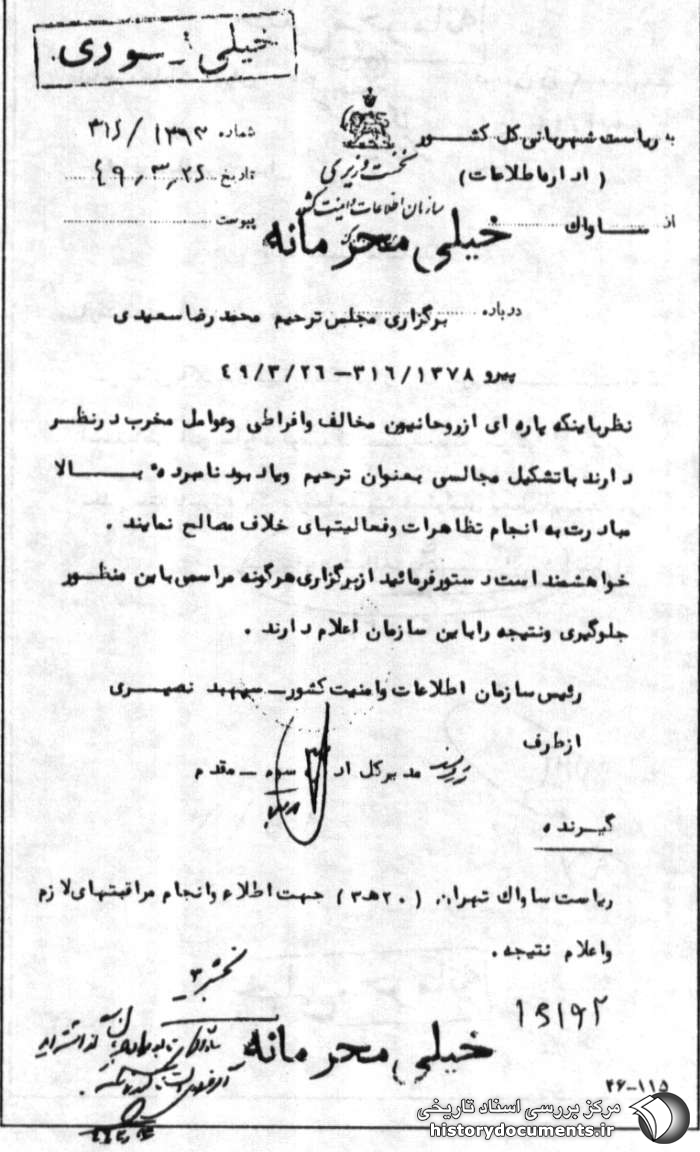 خیلی فوری
به ریاست شهربانی کل کشور
(اداره اطلاعات)
از ساواک
نخست وزیری
سازمان اطلاعات و امنیت کشور
شماره ۳۱۶/۱۳۹۳
تاریخ ۴۹٫۳٫۲۶
پیوست
خیلی محرمانه
درباره برگزاری مجلس ترحیم محمد رضا سعیدی
پیرو ۳۱۶/۱۳۷۸-۴۹/۳/۲۶
نظرباینکه پاره ای ازروحانیون مخالف وافراطی وعوامل مخرب درنظر
دارند باتشکیل مجالسی بعنوان ترحیم ویادبود نامبرده بالا
مبادرت به انجام تظاهرات وفعالیتهای خلاف مصالح نمایند .
خواهشمند است دستورفرمائید ازبرگزاری هرگونه مراسمی باین منظور
جلوگیری ونتیجه راباین سازمان اعلام دارند .
رئیس سازمان اطلاعات وامنیت کشور- سپهبد نصیری
ازطرف
مدیرکل اداره سوم - مقدم
گیرنده
ریاست ساواک تهران (۲۰هـ۳) جهت اطلاع وانجام مراقبتهای لازم
واعلام نتیجه .
بخش ۳
خیلی محرمانه
۲۶-۱۱۵
مرکز بررسی اسناد تاریخی
historydocuments.ir